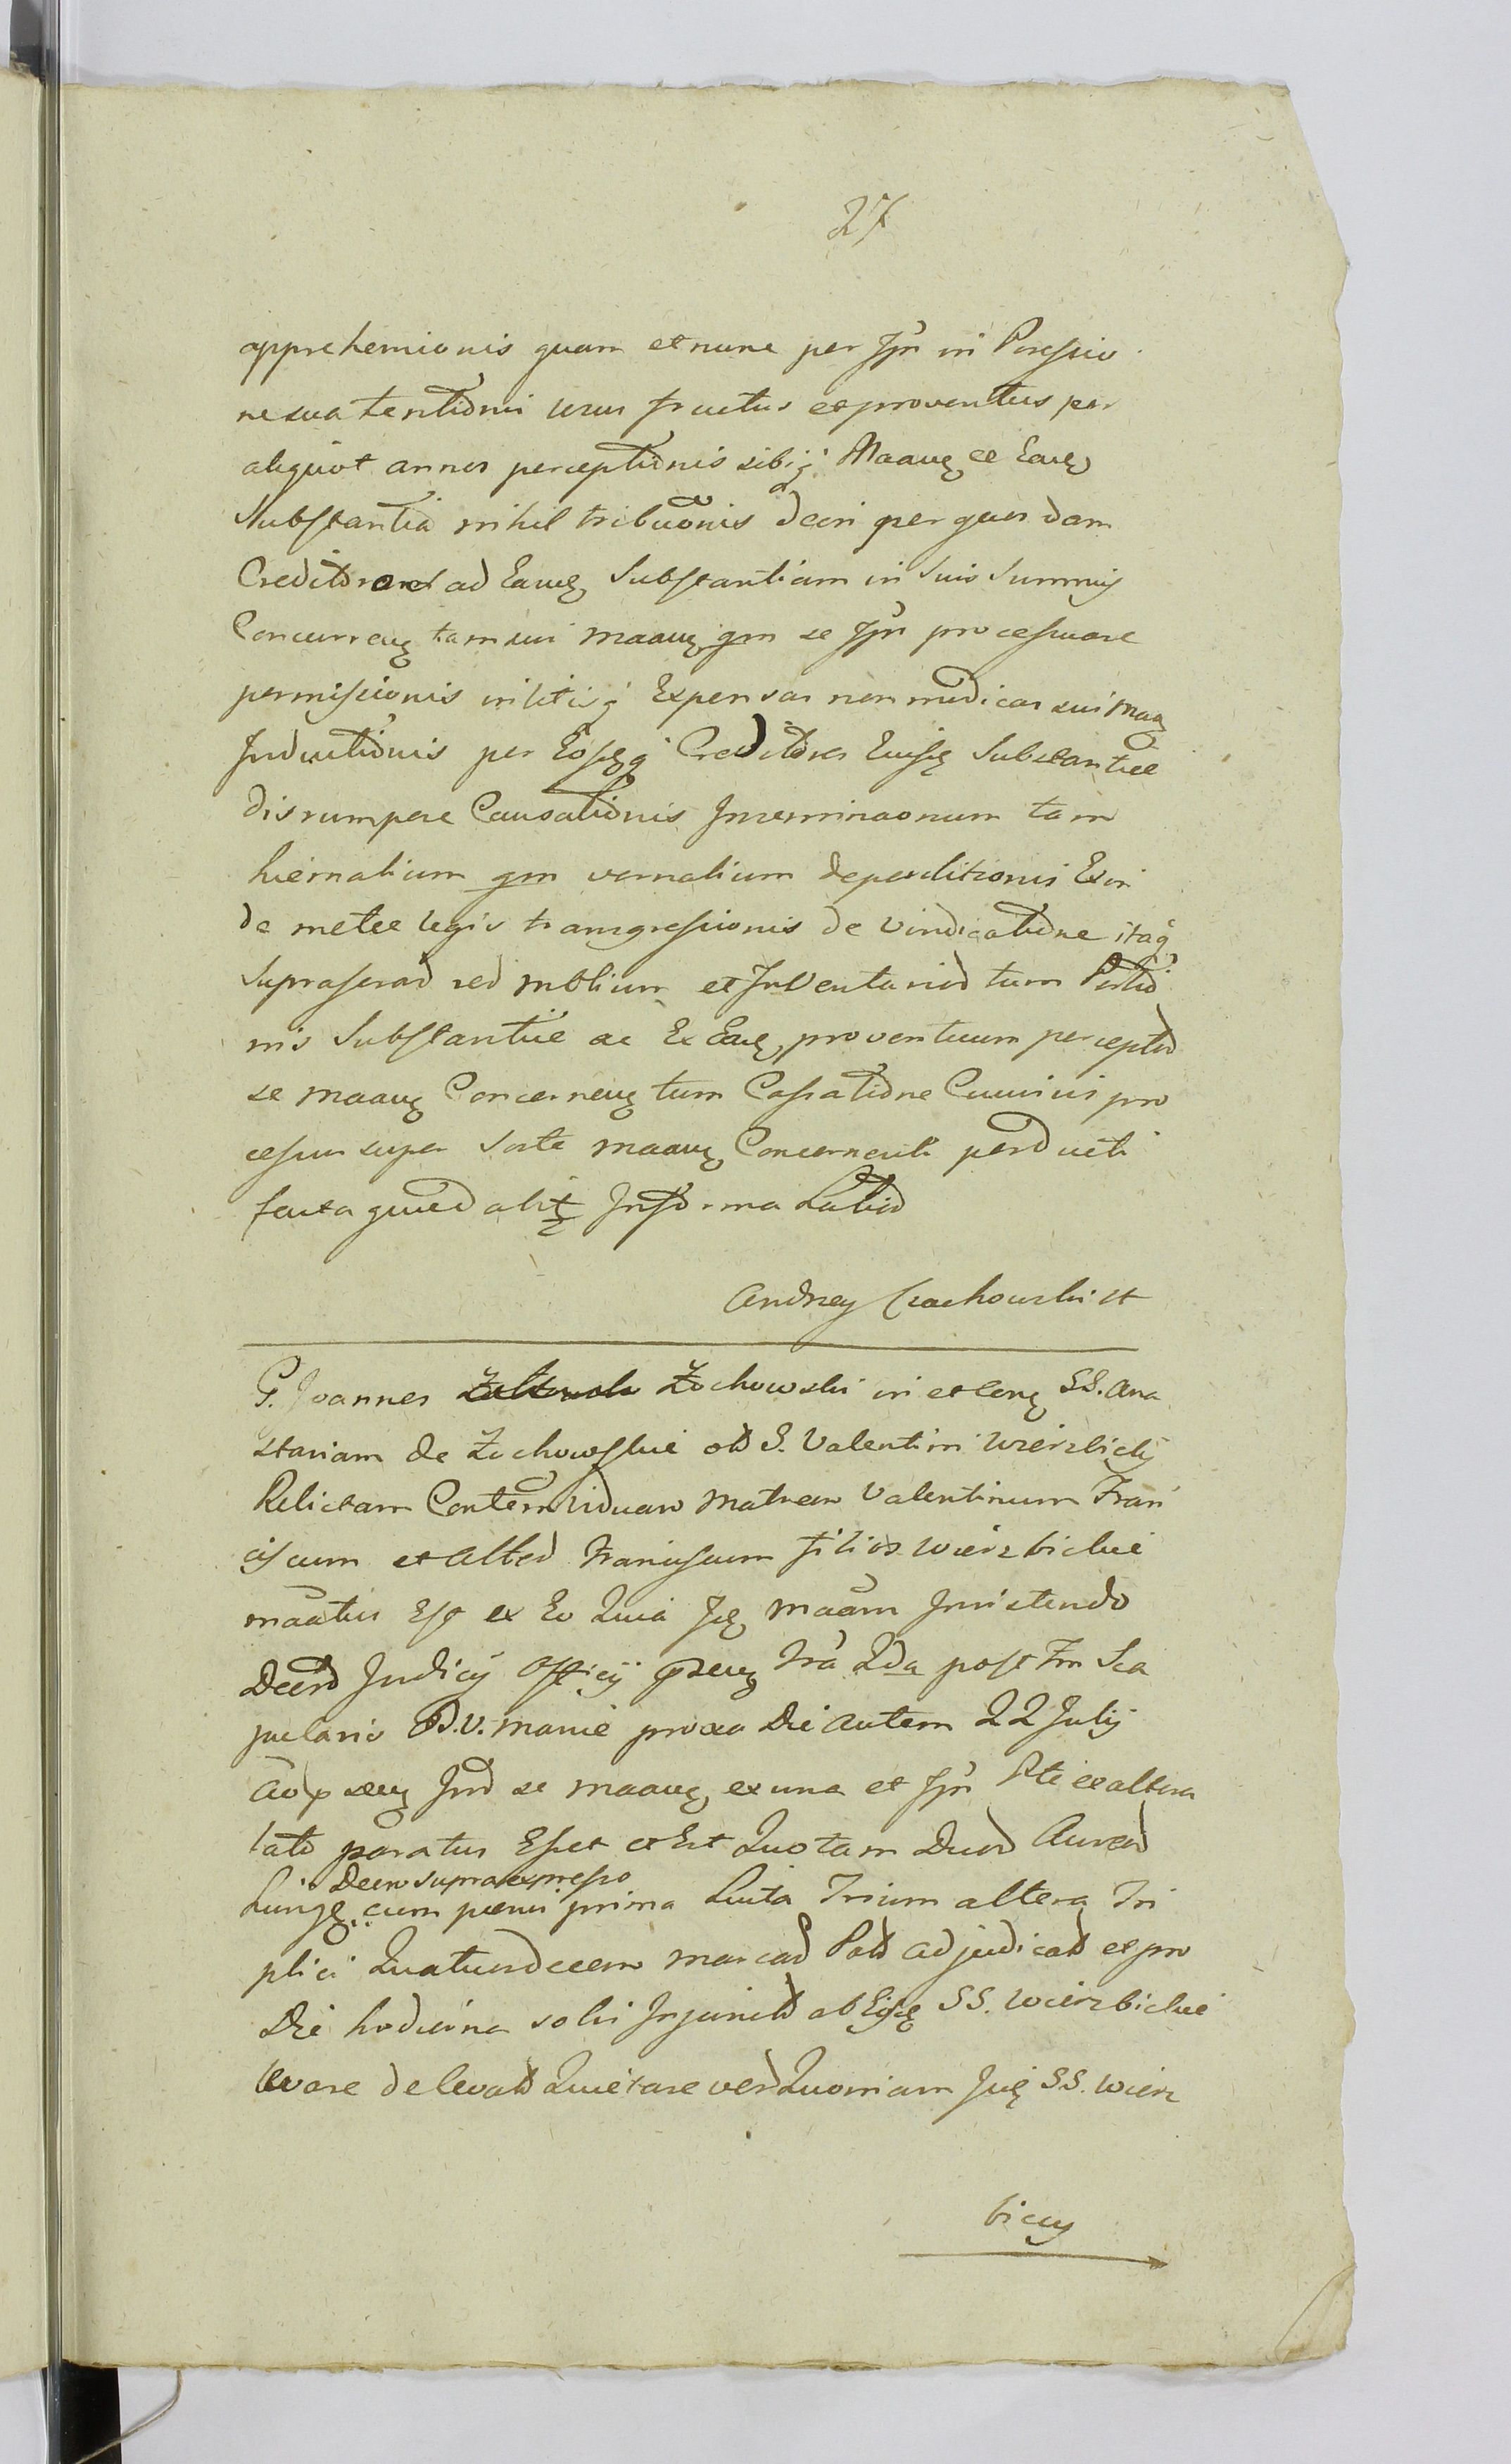 27
apprehensionis quam et nunc per Jpn in Possessio
ne sua tentionis usus fructus et proventus per
aliquot annos perceptionis sibiq Maaug ex Eaug
Substantia nihil tribuonis Dein per quosdam
Creditores ad Eamg Substantiam in suis Summis
Concurreng tam sui maaug qm se Jpn processuare
permissionis in litisq Expensas non modicas sui maag
Inductionis per Eosgq Creditores Eiusg Substantiae
disrumpere Causationis Inseminaonum tam
hiemalium qm vernalium deperditionis Exin
de metae legis transgressionis de vindicatione itaq
supraserad red mblium et Inventariod tum Portio
nis Substantiae ac Ex Eag proventuum perceptod
se maaug Concerneng tum Cassatione Cuiusvis pro
cessus super sorte maaug Concernenti perducti
facta quaed alit In forma Latiod
Andrzey Czachowski st
G. Joannes Zochowski in et cong SS. Ana
stasiam de Zochowskie ol S. Valentini Wierzbicki
Relictam Contem viduam Matrem Valentinum Fran
ciscum et alterd Franciscum filios Wierzbickie
maatus Est ex Eo Quia Jsg maam Insistendo
Decrd Judicij Officij pseng Fra 2da post Fm Sca
pularis B.V. Mariae proxa Die autem 22 Julij
Ao pseng Ind se maaug ex una et Jpn Pte ex altera
lato paratus Esset et Est Quotam Duod Aureod
Decro supra expresso
hungg cum paenis prima Luita Trium altera Tri
plici Quatuordecem marcad Patd adjudicatd et pro
Die hodierna solvi Injunctd ab Eisg SS. Wierzbickie
levare de levatd Quietare verd Quoniam Jug SS. Wierz
biccy